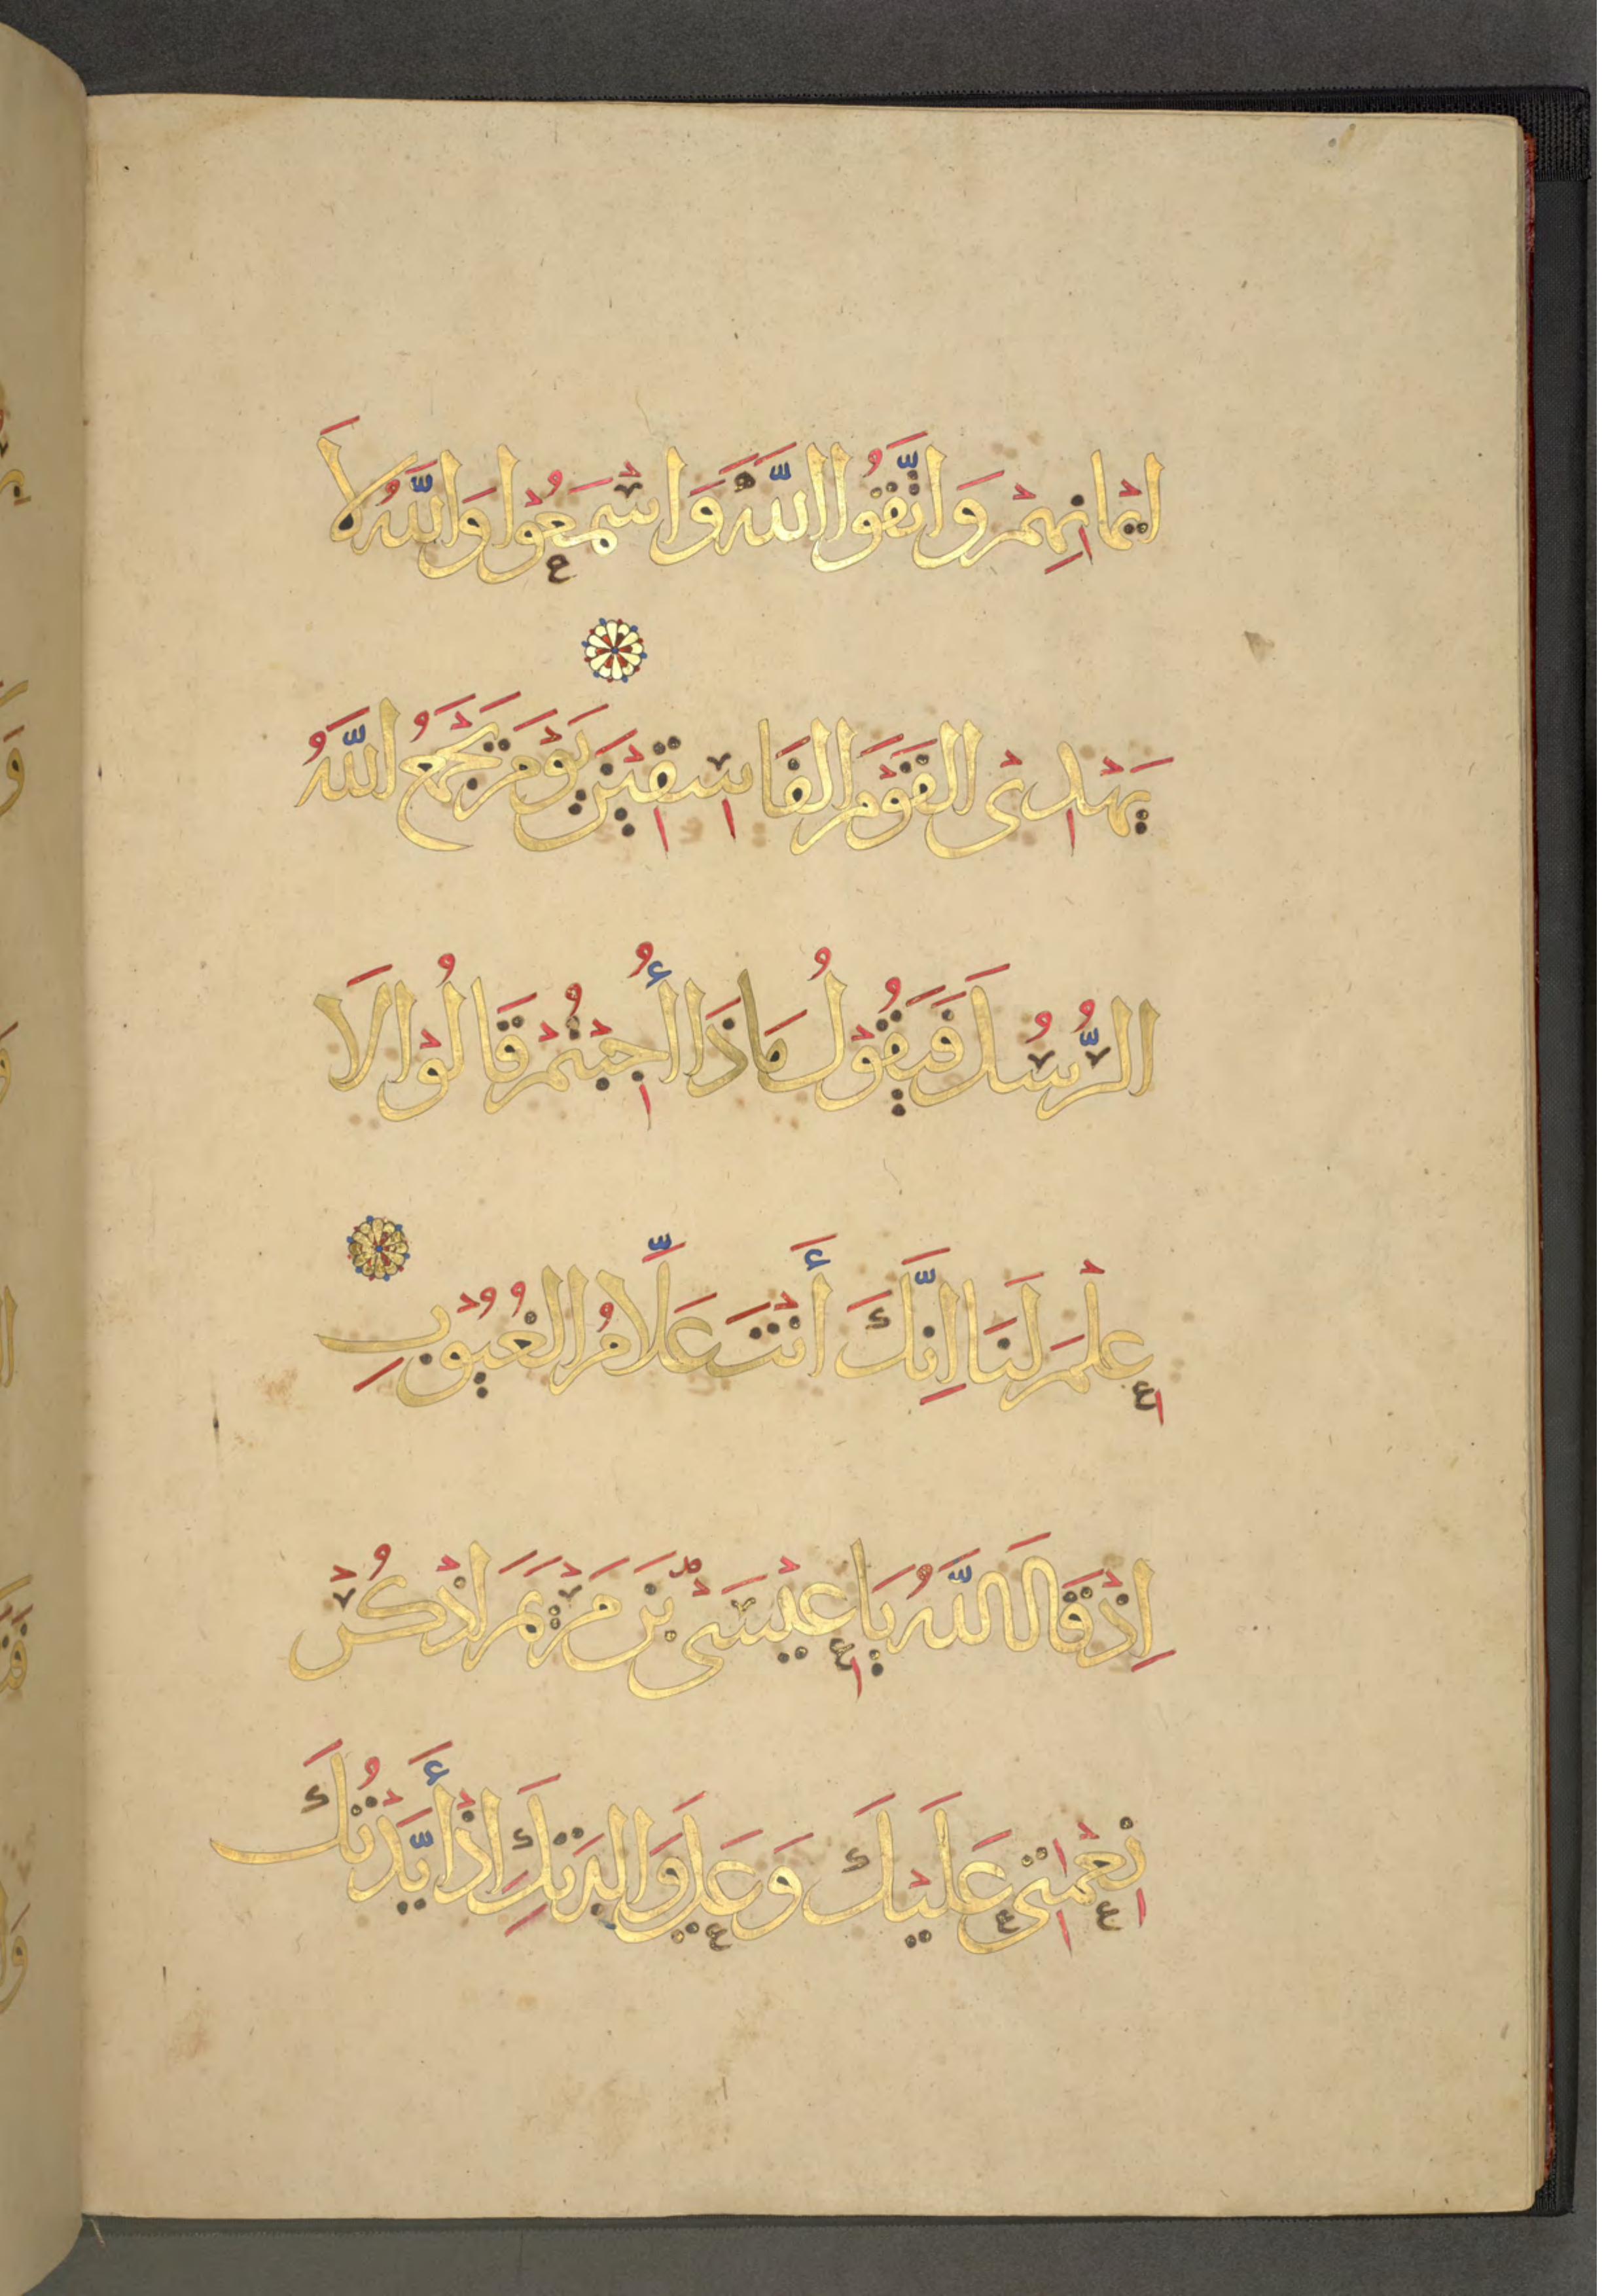 اَيْمَانِهِمْ وَاتَّقُوا اللّٰهَ وَاسْمَعُوْا وَاللّٰهُ لَا
يَهْدِىْ الْقَوْمَ الفَاسِقِيْنَ يَوْمَ يَجْمَعُ اللّٰهُ
الرُّسُلَ فَيَقُوْلُ مَاذَا أُجِبْتُمْ قَالُوْا لَا
عِلْمَ لَنَا اِنَّكَ أَنْتَ عَلَّامُ الغُيُوْبِ
اِذْ قَالَ اللّٰهُ يَا عِيْسَىْ بْنَ مَرْيَمَ اذْكُرْ
نِعْمَتِى عَلَيْكَ وَعَلَى وَالِدَتِكَ اِذْ أَيَّدْتُكَ